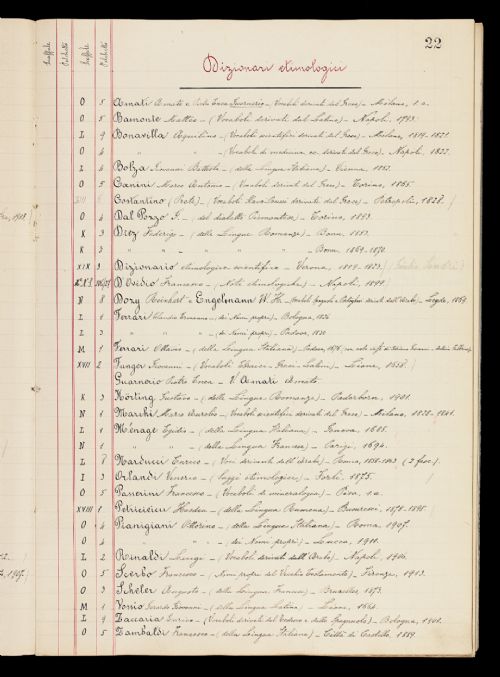 22
Scaffale Palchetto Scaffale Palchetto
Dizionari etimologici
O 5 Amati Amato e Guarnerio – (Vocaboli derivati dal Greco) – Milano, s.a.
O 5 Bamonte Matteo – (Vocaboli derivati dal Latino) – Napoli, 1793.
L 4 Bonavilla Aquilino – (Vocaboli scientifici derivati dal Greco) – Milano, 1819-1821.
O 4 " " – (Vocaboli di medicina ec. derivati dal Greco). Napoli, 1822.
L 4 Bolza Giovanni Battista – (della Lingua Italiana) – Vienna, 1852.
O 5 Canini Marco Antonio – (Vocaboli derivati dal Greco) – Torino, 1865.
Costantino – (Vocaboli Slavi derivati Greco) – Petropoli, 1828.
O 4 Dal Pozzo – (del dialetto Piemontese) – Torino, 1893.
K 3 Diez Federigo – (delle Lingue Romanze) – Bonn, 1853.
K 3 " " " " " " – Bonn, 1869-1870.
XIX 3 Dizionario etimologico scientifico – Verona, 1819-1823.
D'Ovidio Francesco – (Note etimologiche) – Napoli, 1899.
N 8 Dozy Reinhart e Engelmann W. H. – (Vocaboli Spagnoli e Portoghesi derivati dall'Arabo) – Leyde, 1869
L 1 Ferrari Claudio Ermanno – (dei Nomi propri) – Bologna, 1826
L 3 " " " – (dei Nomi propri) – Padova, 1830
M 1 Ferrari Ottavio – (della Lingua Italiana) – Padova, 1676
XVII 2 Funger Giovanni – (Vocaboli Etrusci Greci Latini) – Lione, 1628.
Guarnerio Pietro Enea – V. Amati Amato
K 3 Körting Gustavo – (delle Lingue Romanze) – Paderborn, 1901.
N 1 Marchi Marco Aurelio – (Vocaboli scientifici derivati dal Greco) – Milano, 1828-1841.
L 1 Ménage Egidio – (della Lingua Italiana) – Genova, 1685.
N 1 " " – (della Lingua Francese) – Parigi, 1694.
L 7 Narducci Enrico – (Voci derivate dall'Arabo) – Roma, 1858-1863 (2 fasc.).
I 3 Orlandi Venerio – (saggi etimologici) – Forlì, 1875.
O 5 Panerini Francesco – (Vocaboli di mineralogia) – Pisa, s.a.
XVIII 1 Petriceicu Hasdeu – (della Lingua Rumena) – Bucuresci, 1878-1895
O 4 Pianigiani Ottorino – (della Lingua Italiana) – Roma 1907.
O 4 " " – (dei Nomi propri) – Lucca, 1911.
L 2 Rinaldi Luigi – (Vocaboli derivati dall'Arabo) – Napoli, 1906.
O 5 Scerbo Francesco – (Nomi propri del Vecchio Testamento) – Firenze, 1913.
O 3 Scheler Augusto – (della Lingua Francese) – Bruxelles, 1873.
M 1 Vossio Gerardo Giovanni – (della Lingua Latina) – Lione, 1664.
L 4 Zaccaria Enrico – (Vocaboli derivati dal Tedesco e dallo Spagnuolo) – Bologna, 1901.
O 5 Zambaldi Francesco – (della Lingua Italiana) – Città di Castello, 1889.